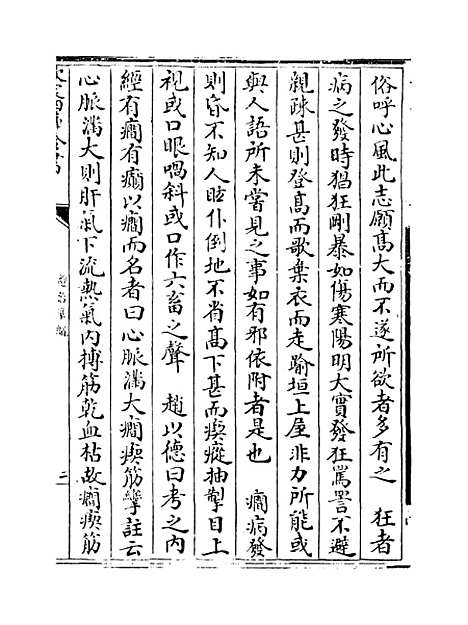 俗呼心風此志願高大而不遂所欲者多有之　狂者
病之發時猖狂剛暴如傷寒陽明大實發狂罵詈不避
親疎甚則登高而歌棄衣而走踰垣上屋非力所能或
與人語所未嘗見之事如有邪依附者是也　癇病發
則昏不知人眩仆倒地不省高下甚而瘈瘲抽掣目上
視或口眼喎斜或口作六畜之聲　趙以德曰考之内
經有癇有癲以癇而名者曰心脈滿大癇瘈筋攣註云
心脈滿大則肝氣下流熱氣内搏筋乾血枯故癇瘈筋
三